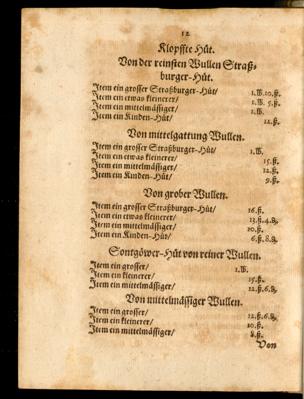 12
Klopffte Hüt.
Von der reinsten Wullen Straß-
burger-Hüt.
Item ein grosser Straßburger-Hüt/ 1.℔.10.ß.
Item ein etwas kleinerer/ 1.℔. 5.ß.
Item ein mittelmässiger/ 1.℔.
Item ein Kinden-Hüt/ 12.ß.
Von mittelgattung Wullen.
Item ein grosser Straßburger-Hüt/ 1.℔.
Item ein etwas kleinerer/ 15.ß.
Item ein mittelmässiger/ 12.ß.
Item ein Kinden-Hüt/ 9.ß.
Von grober Wullen.
Item ein grosser Straßburger-Hüt/ 16.ß.
Item ein etwas kleinerer/ 13.ß.4.₰.
Item ein mittelmässiger/ 10.ß.
Item ein Kinden-Hüt/ 6.ß.8.₰.
Sontgöwer-Hüt von reiner Wullen.
Item ein grosser/ 1.℔.
Item ein kleinerer/ 15.ß.
Item ein mittelmässiger/ 12.ß.6.₰.
Von mittelmässiger Wullen.
Item ein grosser/ 12.ß.6.₰.
Item ein kleinerer/ 10.ß.
Item ein mittelmässiger/ 8.ß.
Von